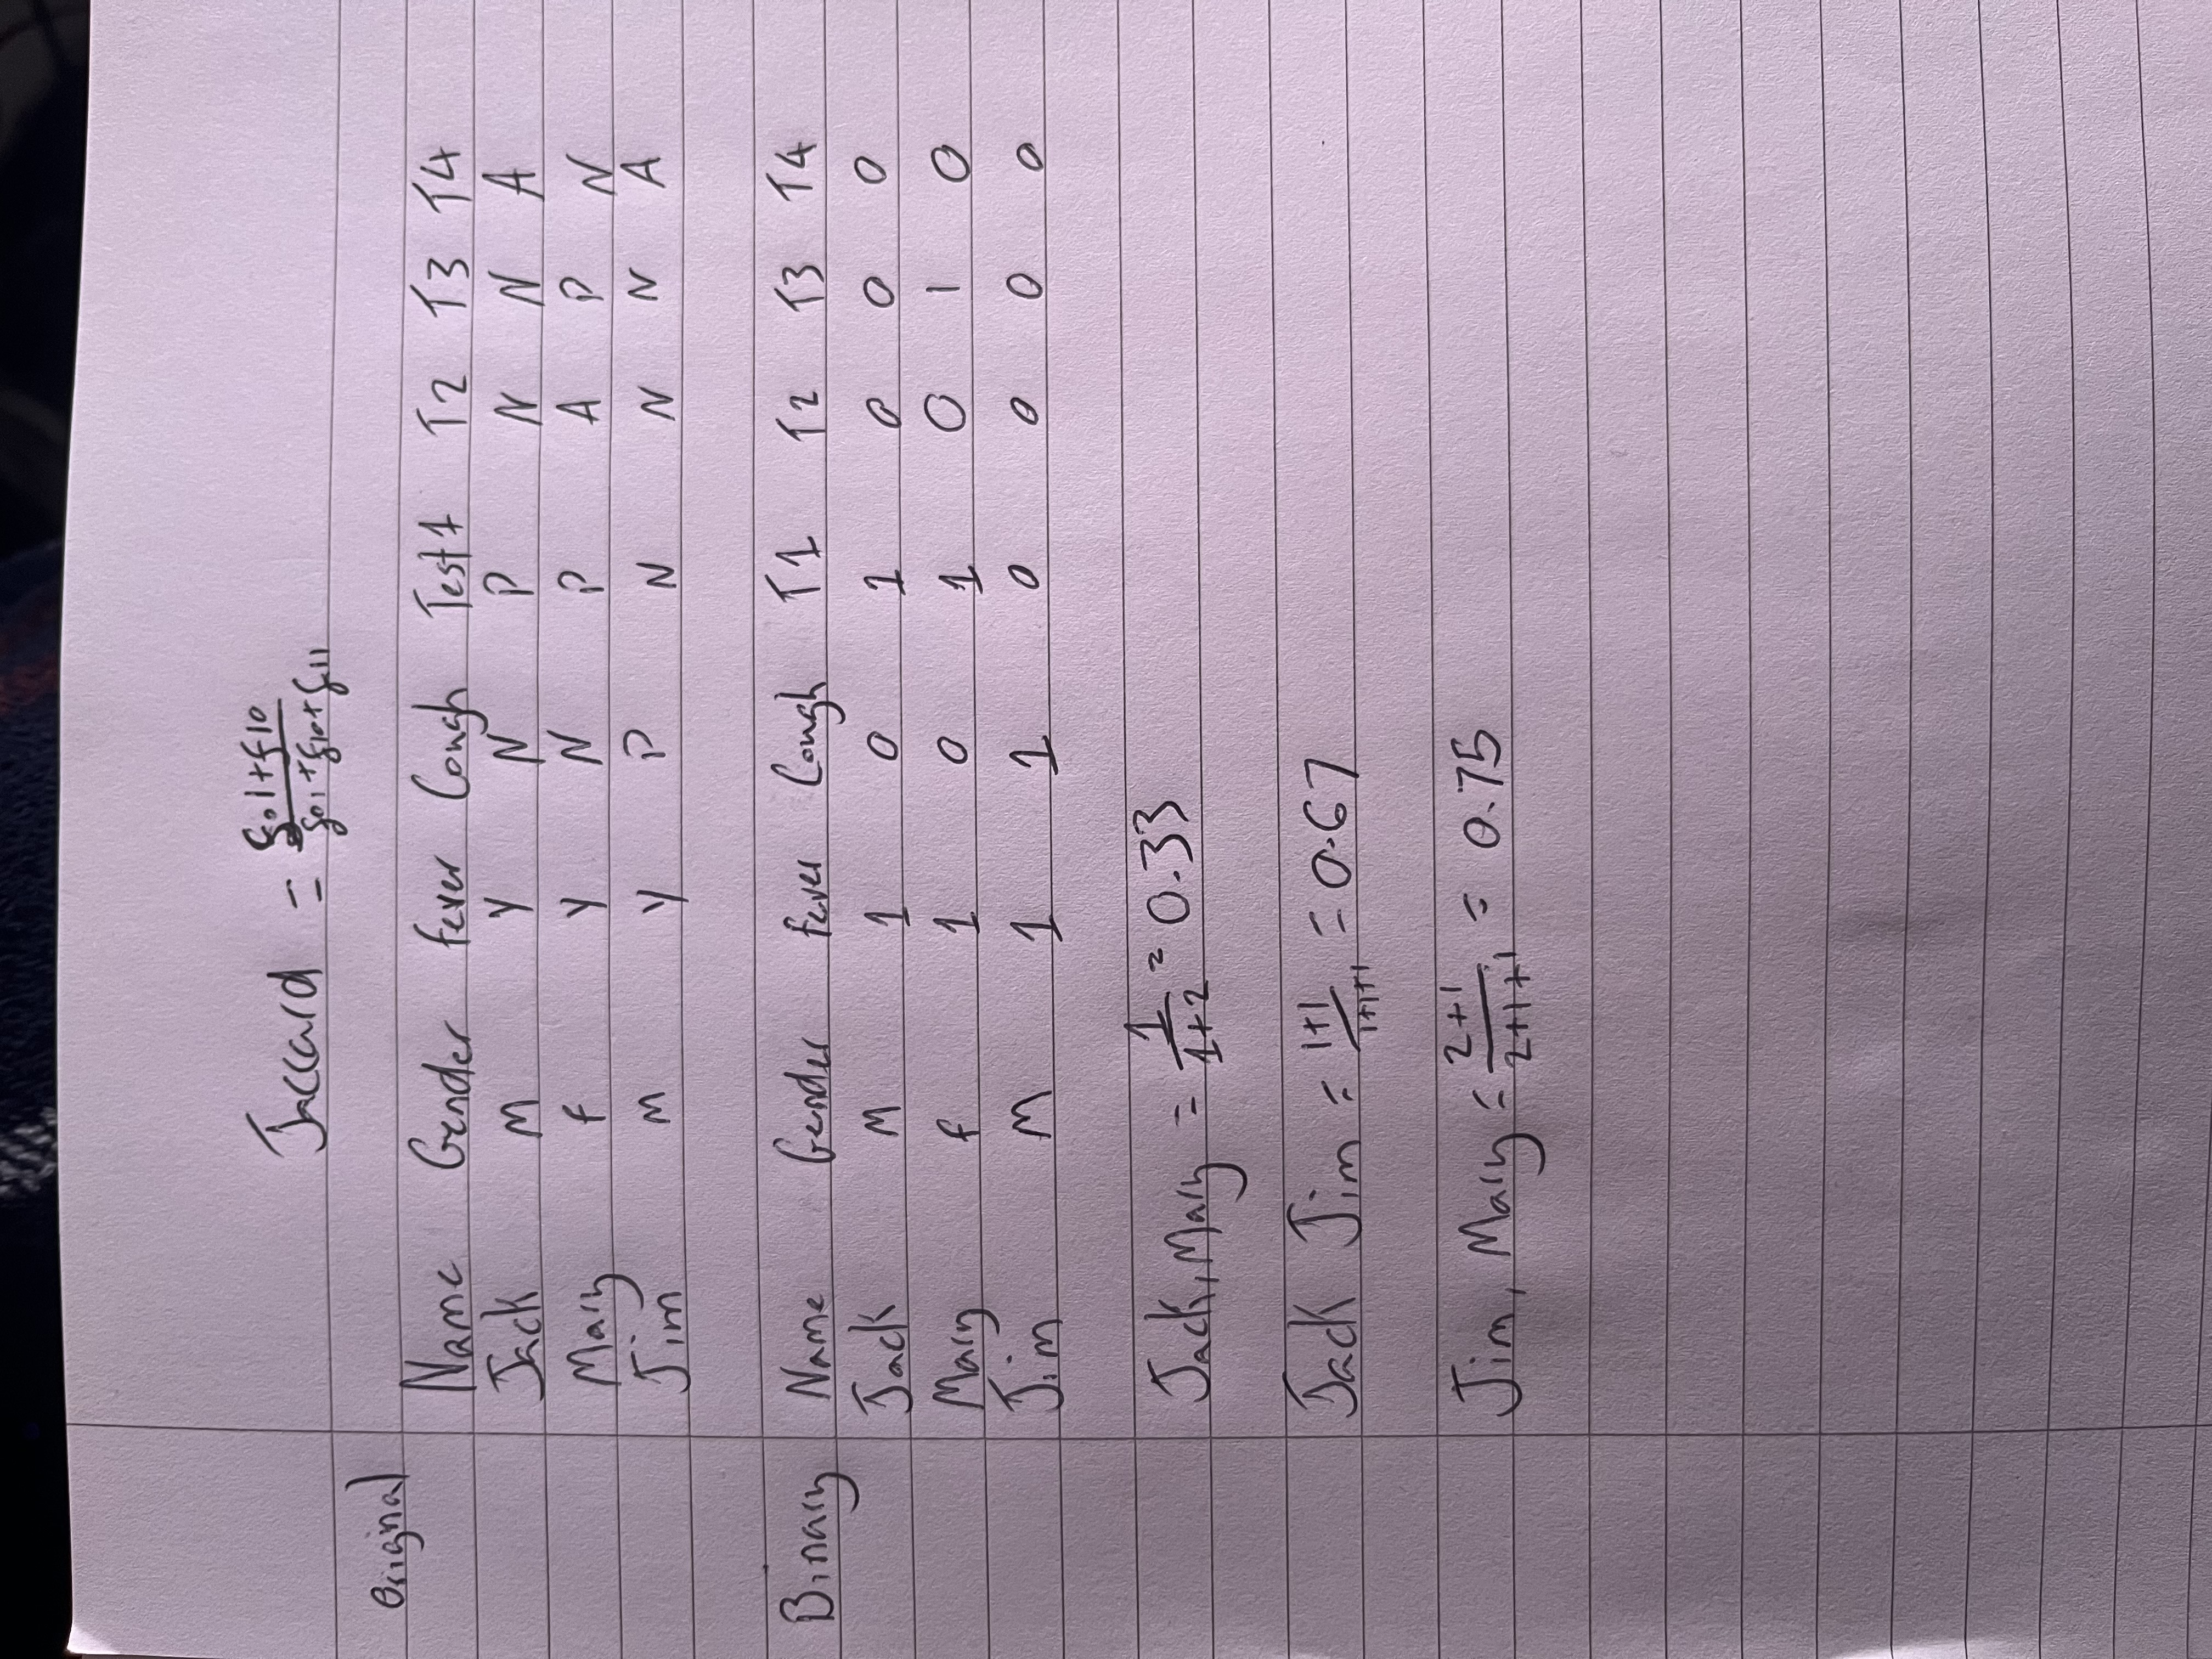 Jaccard = f01+f10 / f01+f10+f11
Original
Name Gender fever Cough Test 1 T2 T3 T4
Jack M Y N P N N A
Mary f Y N P A P N
Jim M Y P N N N A
Binary Name Gender fever Cough T1 T2 T3 T4
Jack M 1 0 1 0 0 0
Mary f 1 0 1 0 1 0
Jim M 1 1 0 0 0 0
Jack, Mary = 1 / 1+2 = 0.33
Jack Jim = 1+1 / 1+1+1 = 0.67
Jim, Mary = 2+1 / 2+1+1 = 0.75